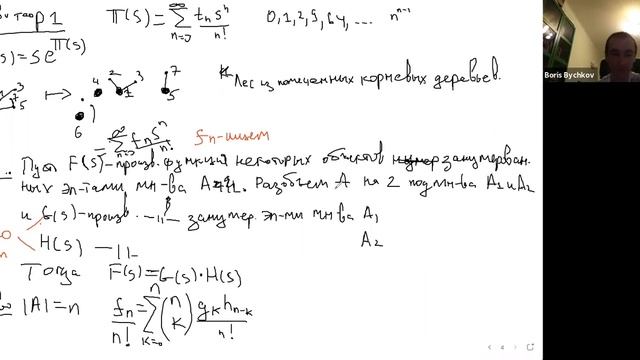 T(s) = ∑_{n=0}^{∞} t_n s^n / n!   0, 1, 2, 9, 64, ... n^{n-1}
(s) = s e^{T(s)}
Boris Bychkov
↦ 4 2 3 1 7 5 6
Лес из помеченных корневых деревьев.
= ∑_{n=0}^{∞} f_n s^n / n!   f_n - ищем
Пусть F(s) - произв. функция некоторых объектов занумерован-
ных эл-тами мн-ва A. Разобьем A на 2 подмн-ва A_1 и A_2
и G(s) - произв. -//- занумер. эл-ми мн-ва A_1
H(s) -//- A_2
Тогда F(s) = G(s) · H(s)
|A| = n   f_n / n! = ∑_{k=0}^{n} (n k) g_k h_{n-k} / n!